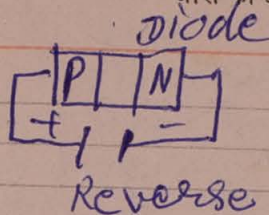 Diode
P N
+ -
Reverse